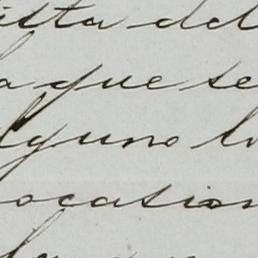 ista del
a que se
lguno lo
ocasion